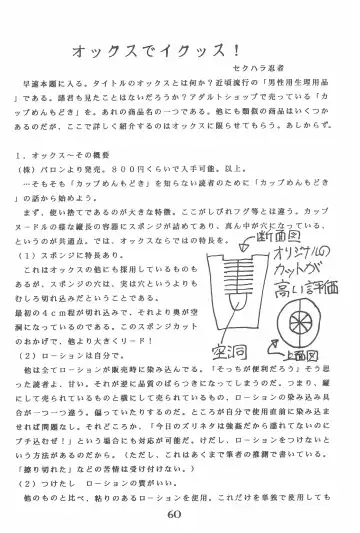 オックスでイクッス！
セクハラ忍者
早速本題に入る。タイトルのオックスとは何か？近頃流行の「男性用生理用品
」である。諸君も見たことはないだろうか？アダルトショップで売っている「カ
ップめんもどき」を。あれの商品名の一つである。他にも類似の商品はいくつか
あるのだが、ここで詳しく紹介するのはオックスに限らせてもらう。あしからず。
１．オックス～その概要
（株）バロンより発売。８００円くらいで入手可能。以上。
…そもそも「カップめんもどき」を知らない読者のために「カップめんもどき
」の話から始めよう。
まず、使い捨てであるのが大きな特徴。ここがしびれフグ等とは違う。カップ
ヌードルの様な縦長の容器にスポンジが詰めてあり、真ん中が穴になっている、
というのが共通点。では、オックスならではの特長を。
（１）スポンジに特長あり。
これはオックスの他にも採用しているものも
あるが、スポンジの穴は、実は穴というよりも
むしろ切れ込みだということである。
最初の４ｃｍ程が切れ込みで、それより奥が空
洞になっているのである。このスポンジカット
のおかげで、他より大きくリード！
断面図
オリジナルの
カットが
高い評価
空洞
上面図
（２）ローションは自分で。
他は全てローションが販売時に染み込んでる。「そっちが便利だろう」そう思
った読者よ、甘い。それが逆に品質のばらつきになってしまうのだ。つまり、縦
にして売られているものと横にして売られているもの、ローションの染み込み具
合が一つ一つ違う。偏っていたりするのだ。ところが自分で使用直前に染み込ま
せれば問題なし。それどころか、「今日のズリネタは強姦だから濡れてないのに
ブチ込むぜ！」という場合にも対応が可能だ。けだし、ローションをつけないと
いう方法があるのだから。（ただし、これはあくまで筆者の推測で書いている。
「擦り切れた」などの苦情は受け付けない。）
（２）つけたし　ローションの質がいい。
他のものと比べ、粘りのあるローションを使用。これだけを単独で使用しても
60